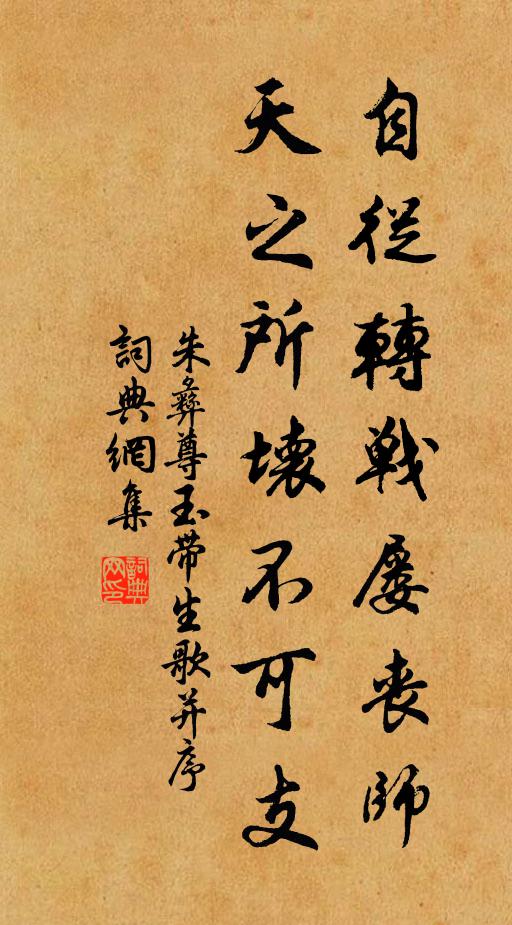 自從轉戰屢喪師
天之所壞不可支
朱彝尊玉帶生歌并序
詞典網集
詞典網印